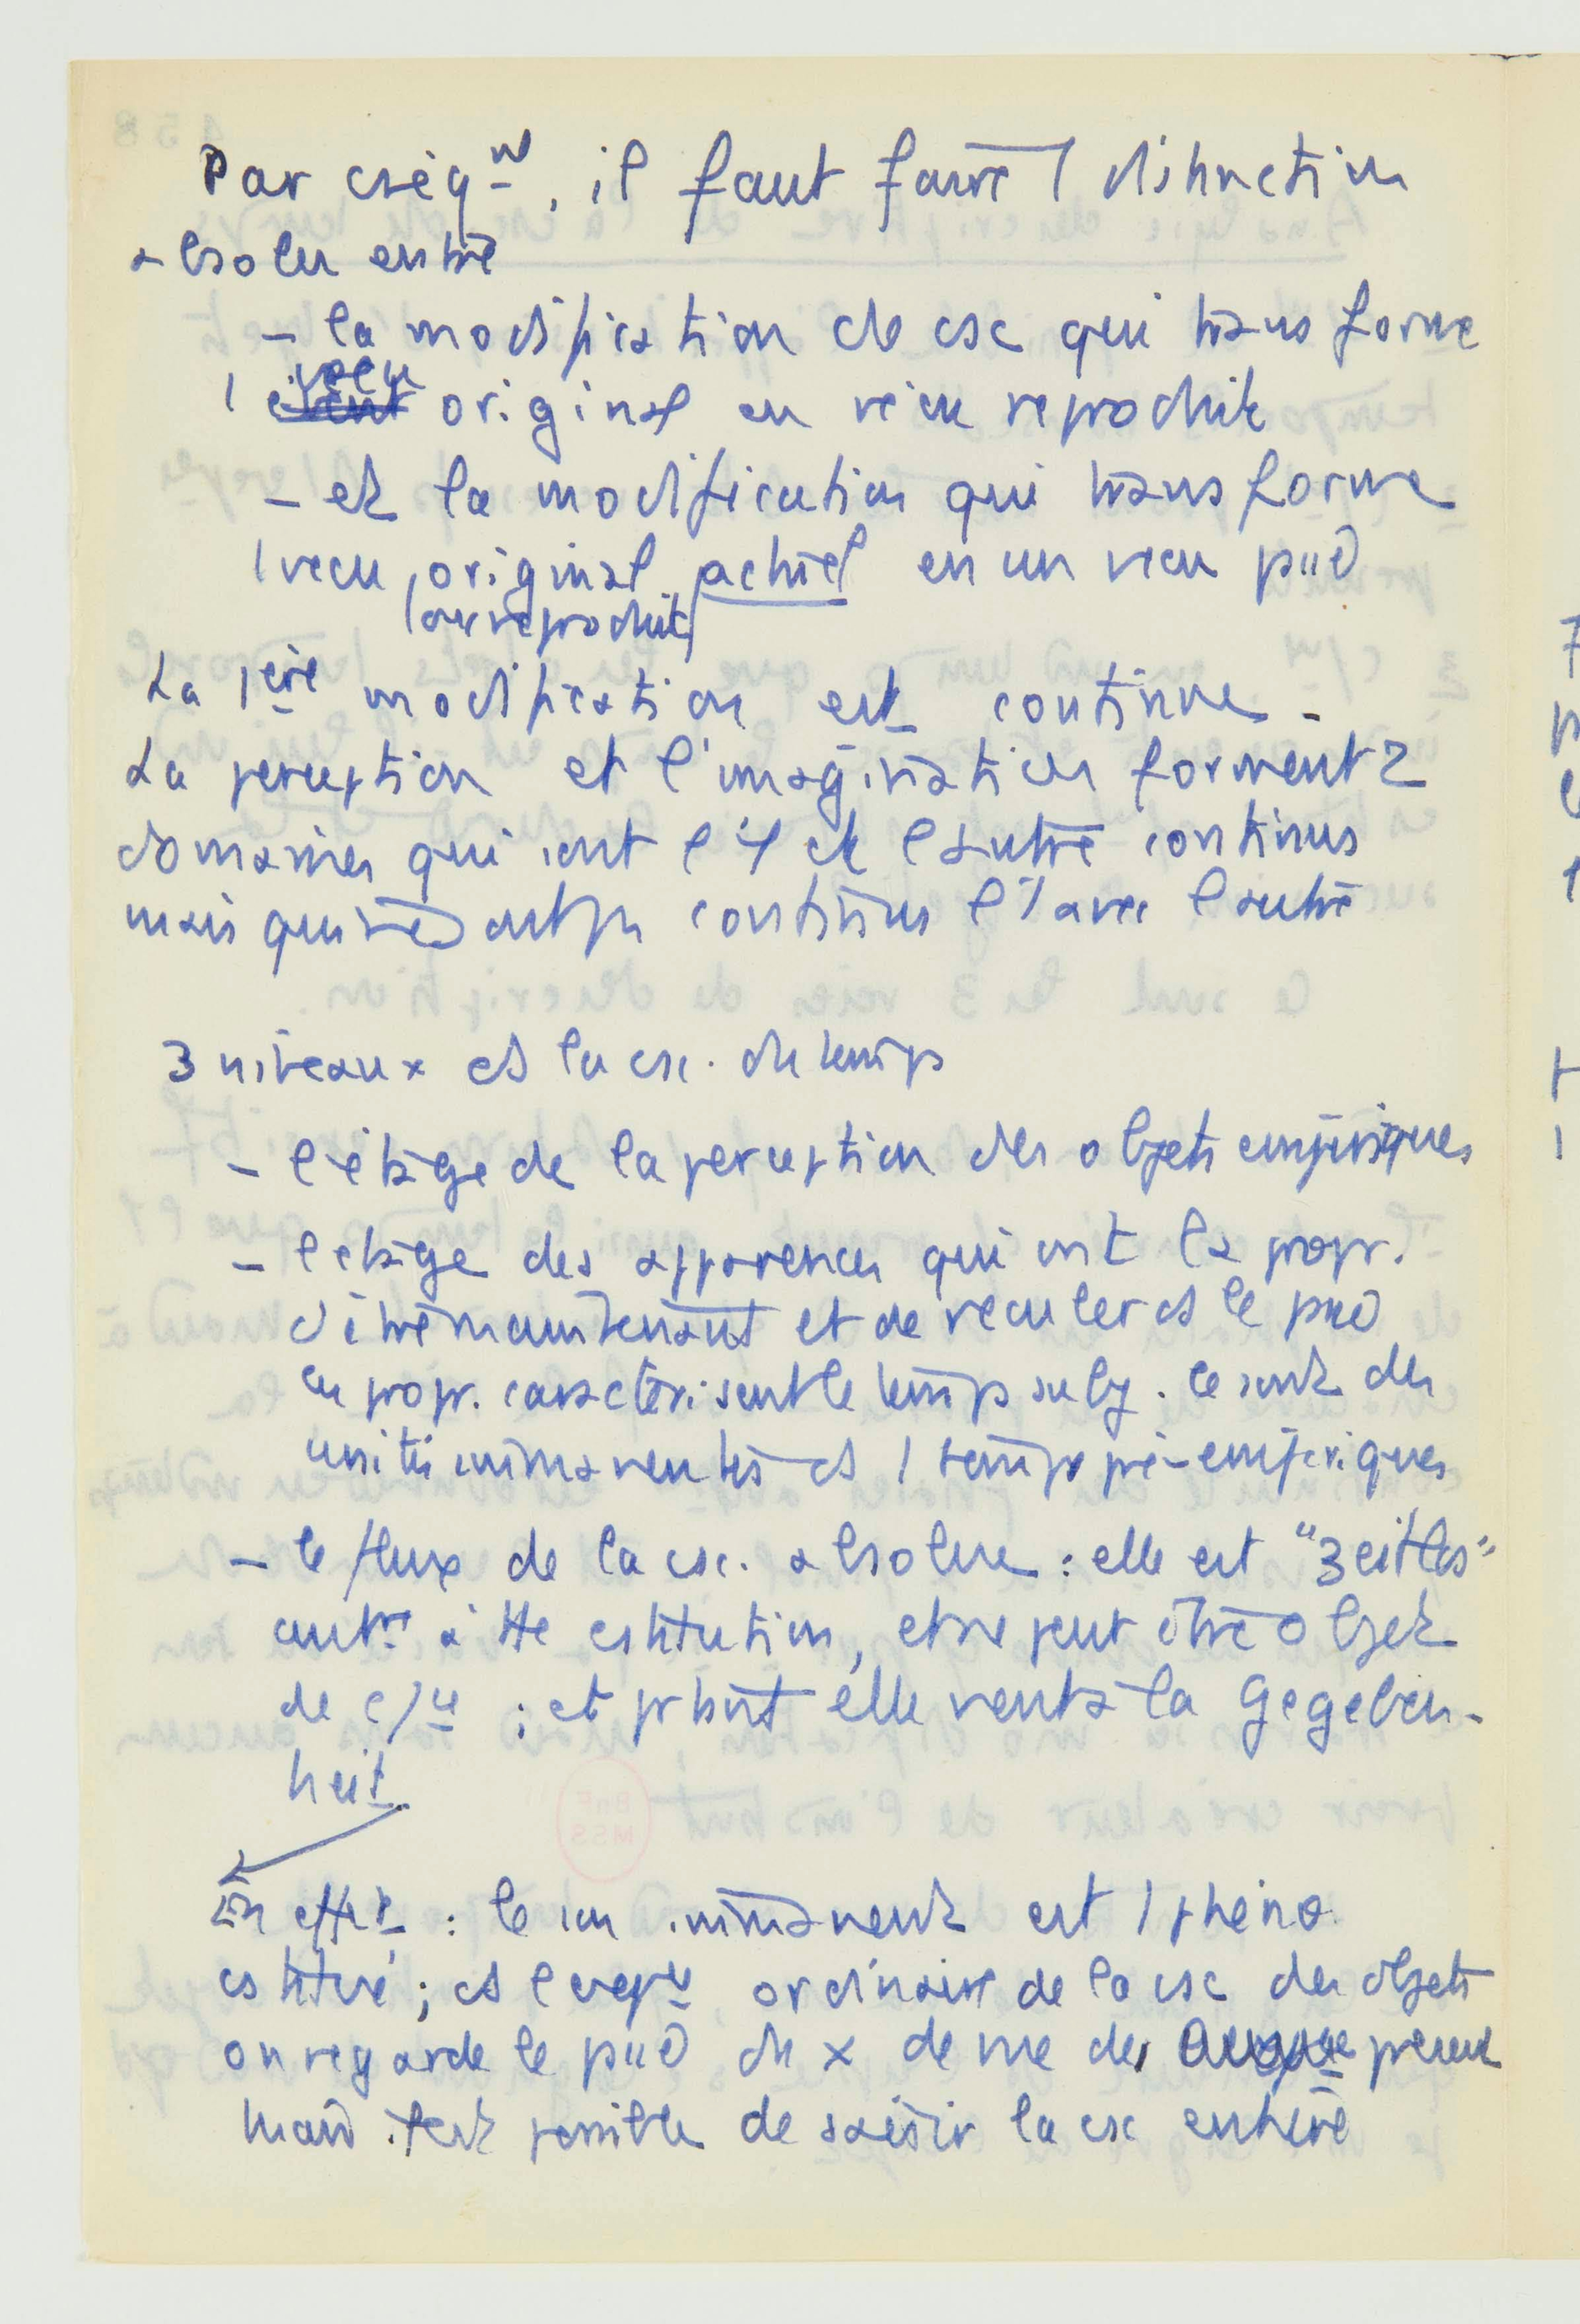 Par cséqnt, il faut faire 1 distinction
absolue entre
– la modification de csc qui transforme
1 vécu original en vécu reproduit
– et la modification qui transforme
1 vécu original actuel en un vécu
(ou reproduit)
La 1ère modification est continue.
La perception et l'imagination forment 2
domaines qui sont l'1 et l'autre continus
mais qui ne st pas continus l'1 avec l'autre
3 niveaux ds la csc. du temps
– l'étage de la perception des objets empiriques
– l'étage des apparences qui ont la propr.
d'être maintenant et de reculer ds le
ces propr. caractérisent le temps subj. ce sont des
unités immanentes ds 1 temps pré-empiriques
– le flux de la csc. absolue : elle est "Zeitlos"
antre à tte cstitution, et ne peut être objet
de ; et prtant elle vient à la Gegeben-
heit.
En effet : le son immanent est 1 phéno
cstitué ; ds l' ordinaire de la csc des objets
on regarde le du x de vue du présent
mais il est possible de saisir la csc entière